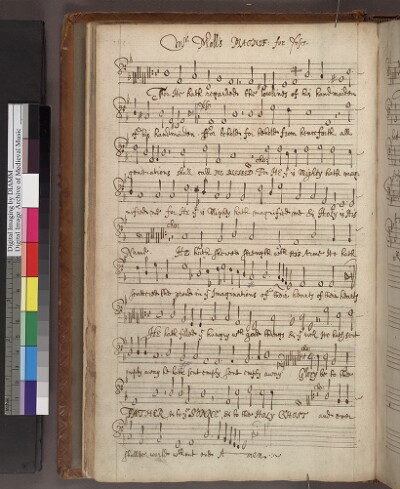 Mr Molls MAGNIF: for Ju
For He hath regarded the lowlines of his handmaiden
of his handmaiden For behold for behold from henceforth all
generations shall call me BLESSED For HE yt is Mighty hath mag-
nified me for He yt is Mighty hath magnified me & Holy is His
Name. He hath shewed strength with His Arme He hath
scattered the proud in ye Imaginations of their hearts of their hearts
He hath filled ye hungry wth good things & ye rich He hath sent
empty away he hath sent empty sent empty away Glory be to the
FATHER & to ye SONNE & to the HOLY GHOST and ever
shalbe world without end A men.
Digital Imaging by DIAMM
Digital Image Archive of Medieval Music